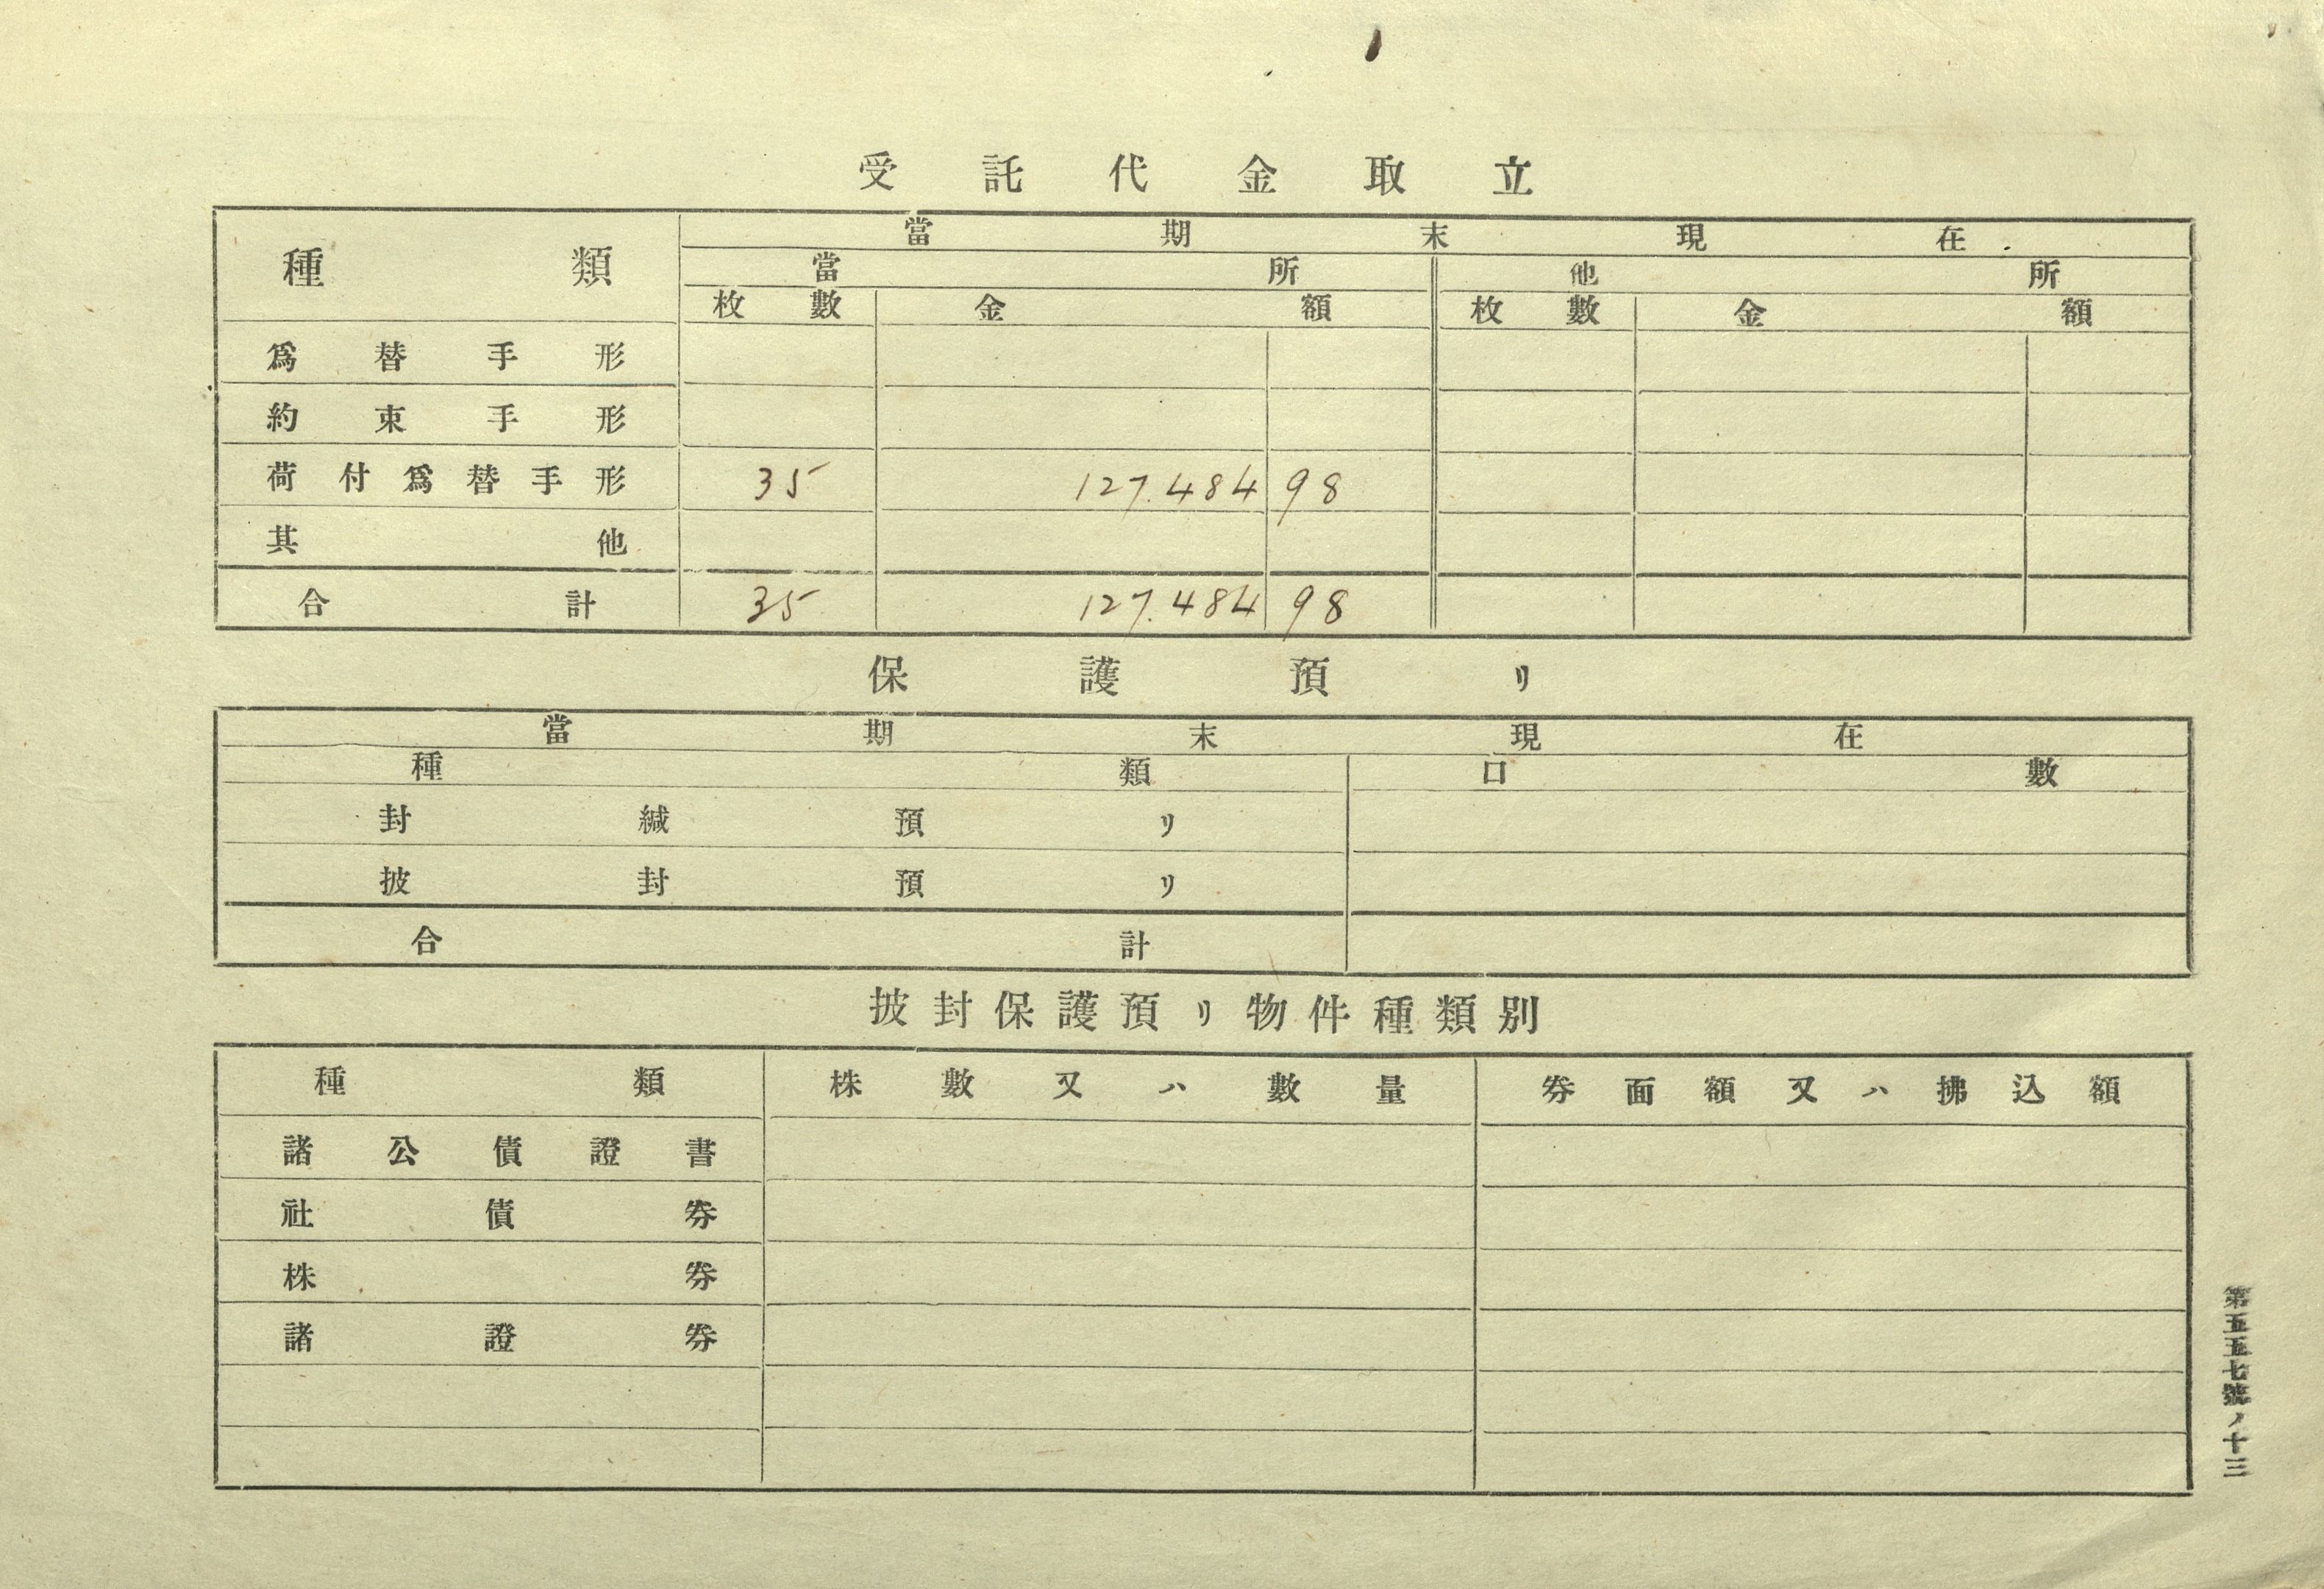 受託代金取立
種類 當期末現在
當所 他所
枚數 金額 枚數 金額
爲替手形
約束手形
荷付爲替手形 35 127.484 98
其他
合計 35 127.484 98
保護預リ
當期末現在
種類 口數
封緘預リ
披封預リ
合計
披封保護預リ物件種類別
種類 株數又ハ數量 券面額又ハ拂込額
諸公債證書
社債券
株券
諸證券
第五五七號ノ十三